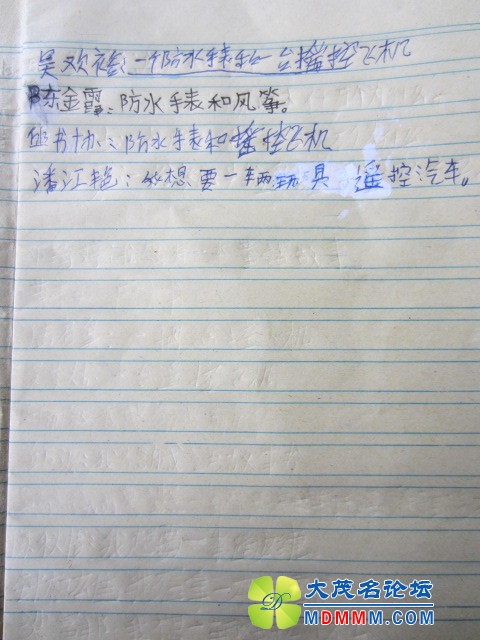 吴欢裕:一个防水手表和一台摇控飞机
陈金霞:防水手表和风筝。
书协:防水手表和摇控飞机
潘江艳:我想要一辆玩具遥控汽车。
大茂名论坛
MDMMM.COM